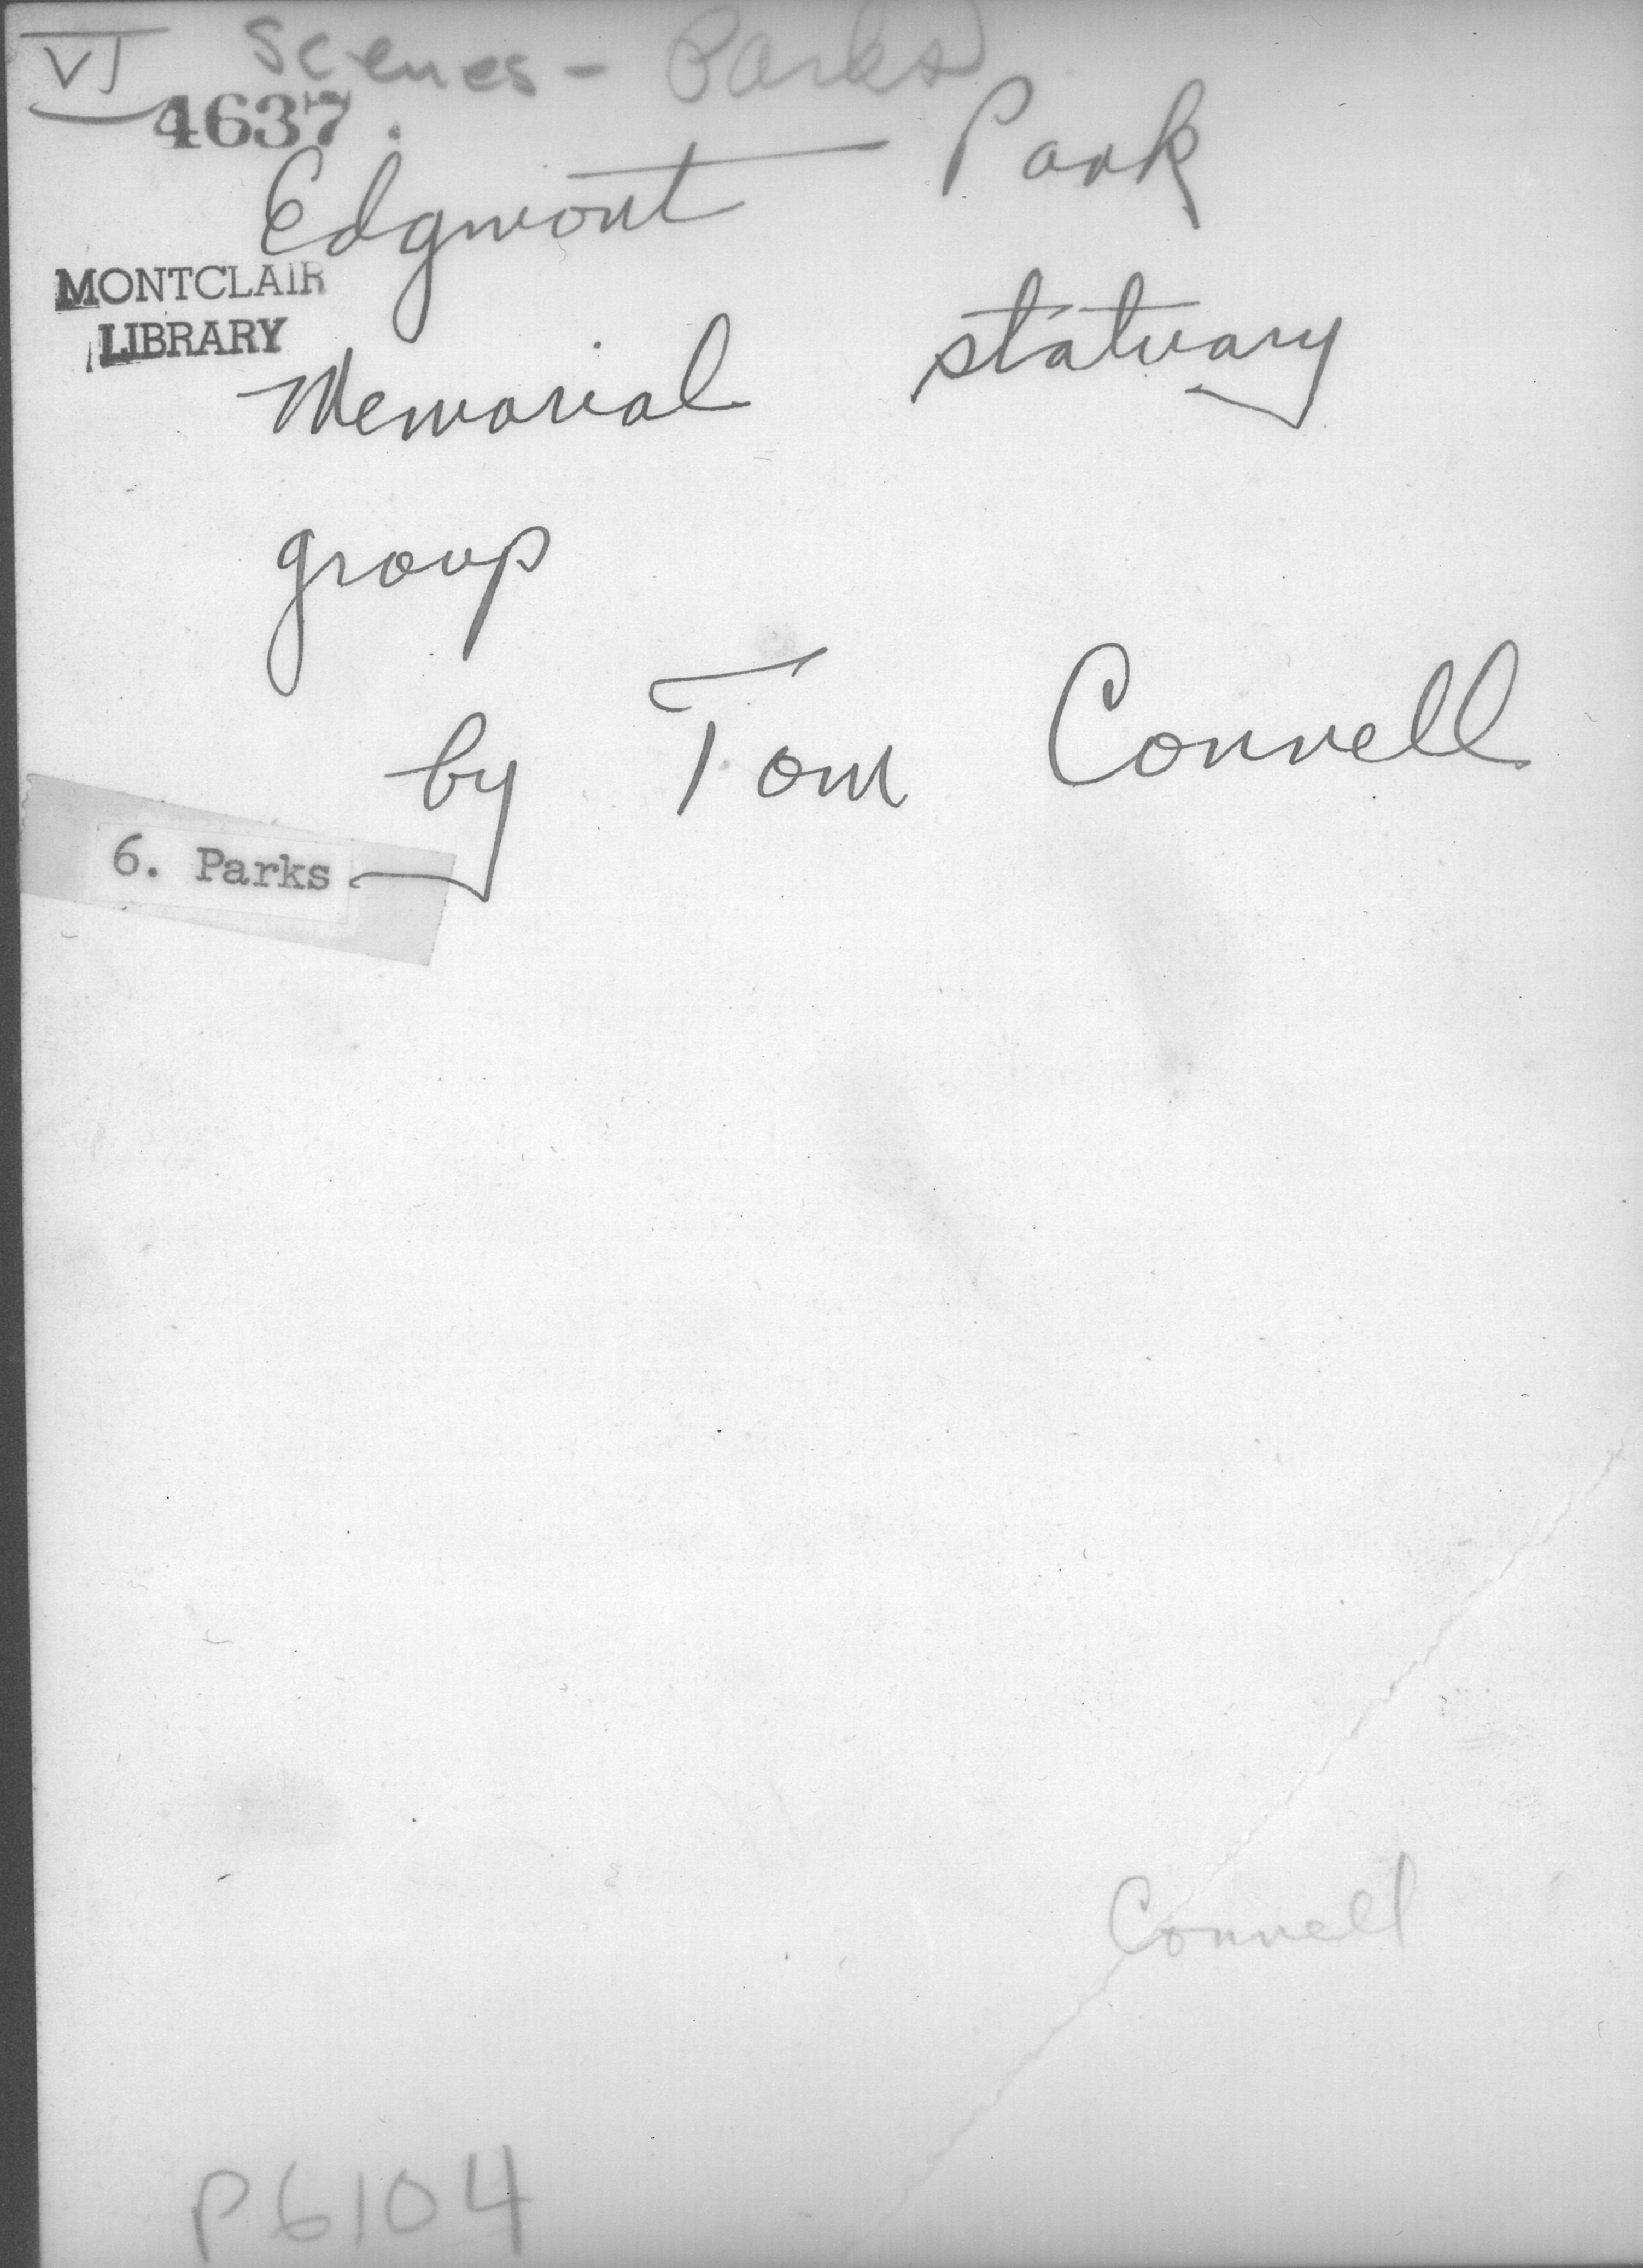 VI Scenes - Parks
4637.
Edgmont Park
MONTCLAIR
LIBRARY
Memorial statuary
group
by Tom Connell
6. Parks
Connell
P6104